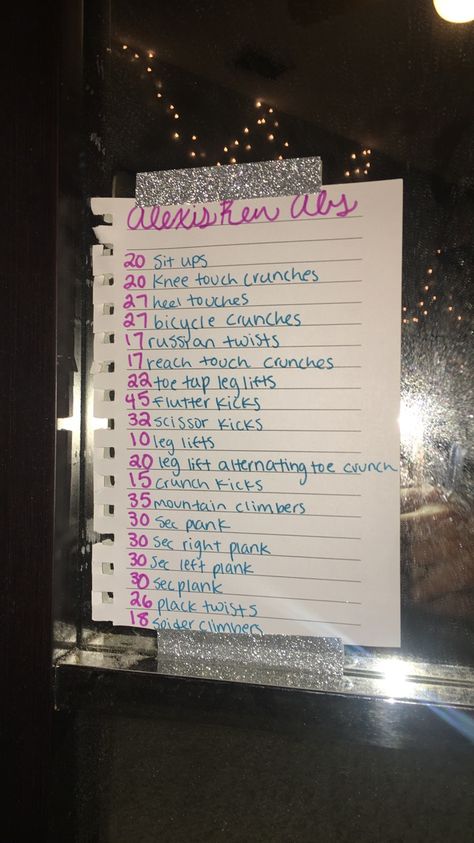 Alexis Ren Abs
20 Sit ups
20 Knee touch crunches
27 heel touches
27 bicycle crunches
17 russian twists
17 reach touch crunches
22 toe tap leg lifts
45 flutter kicks
32 scissor kicks
10 leg lifts
20 leg lift alternating toe crunch
15 crunch kicks
35 mountain climbers
30 sec plank
30 sec right plank
30 sec left plank
30 sec plank
26 plack twists
18 spider climbers